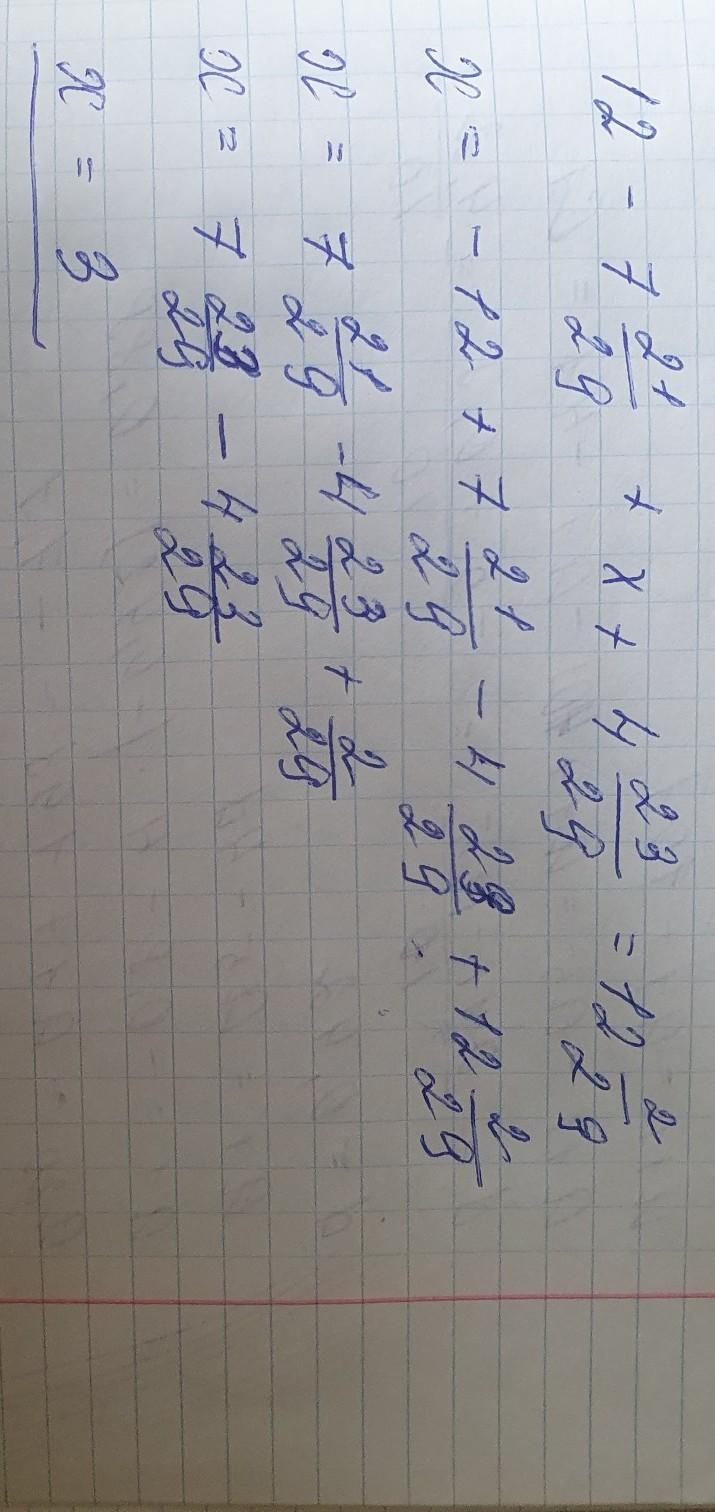 12 - 7 21/29 + x + 4 23/29 = 12 2/29
x = - 12 + 7 21/29 - 4 23/29 + 12 2/29
x = 7 21/29 - 4 23/29 + 2/29
x = 7 23/29 - 4 23/29
x = 3